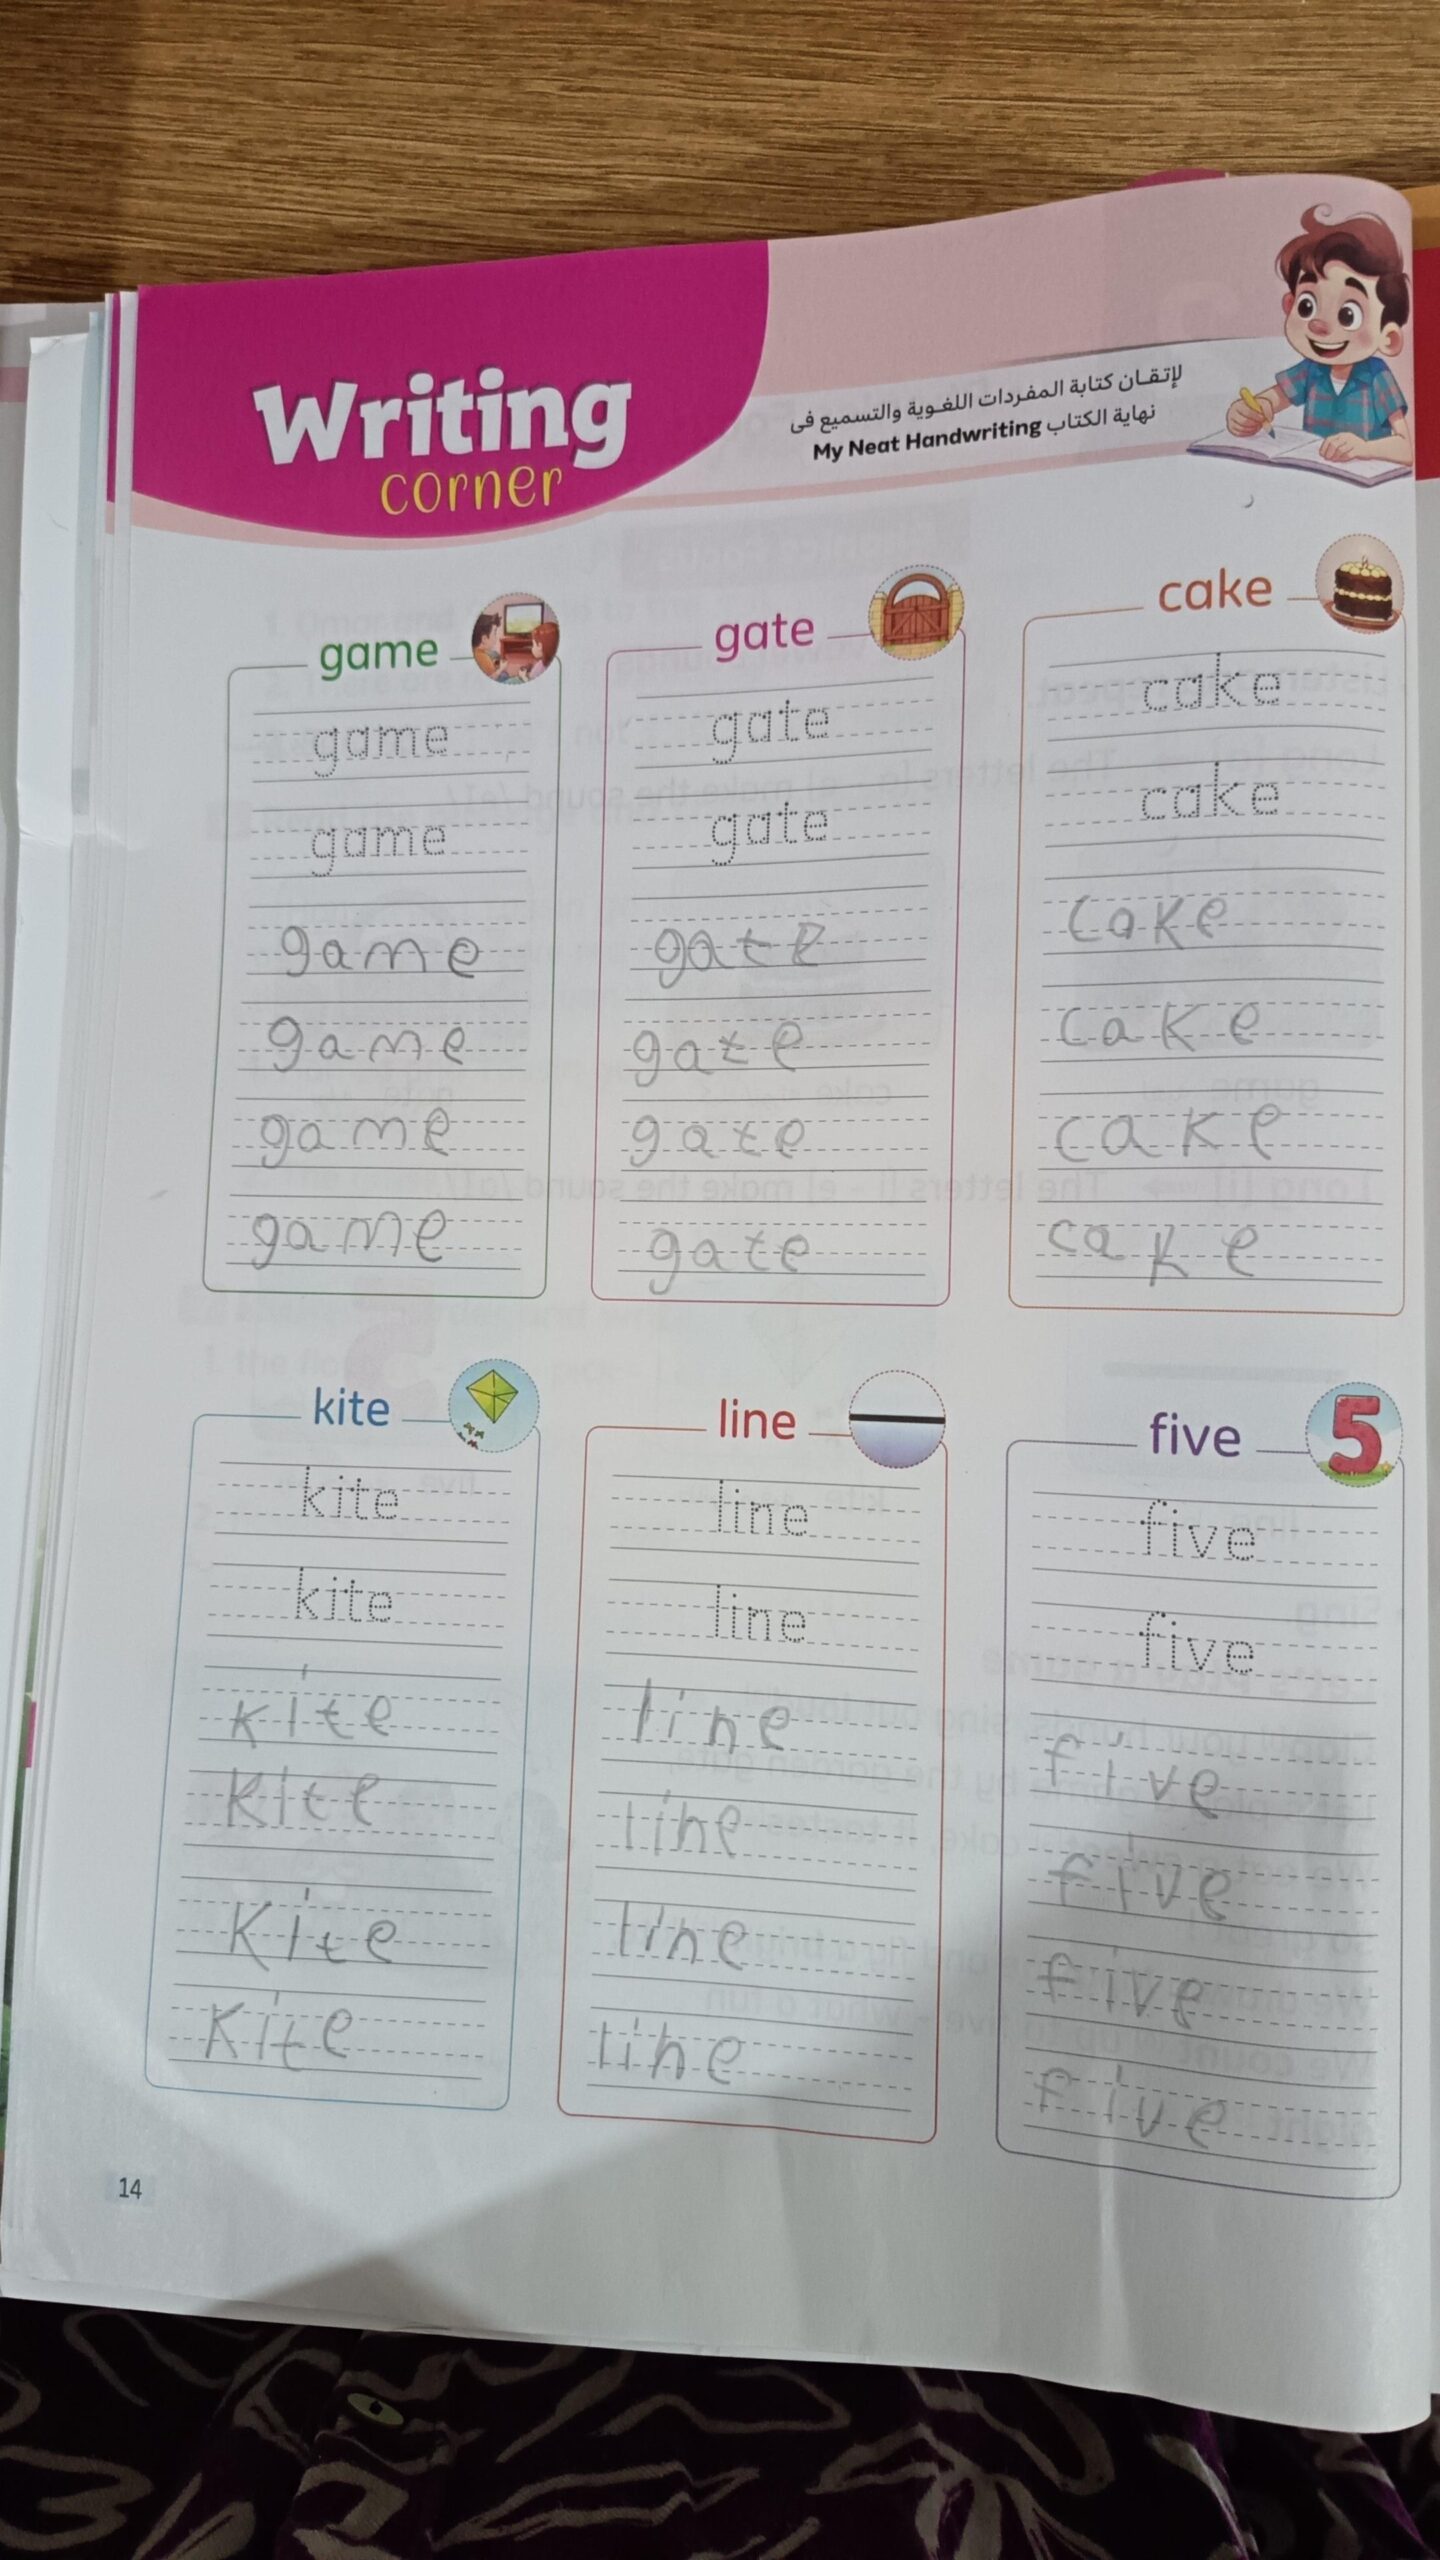 Writing
corner
لإتقان كتابة المفردات اللغوية والتسميع فى
نهاية الكتاب My Neat Handwriting
game
game
game
game
game
game
game
gate
gate
gate
gate
gate
gate
gate
cake
cake
cake
cake
cake
cake
cake
kite
kite
kite
kite
kite
kite
kite
line
line
line
line
line
line
line
five
5
five
five
five
five
five
five
14